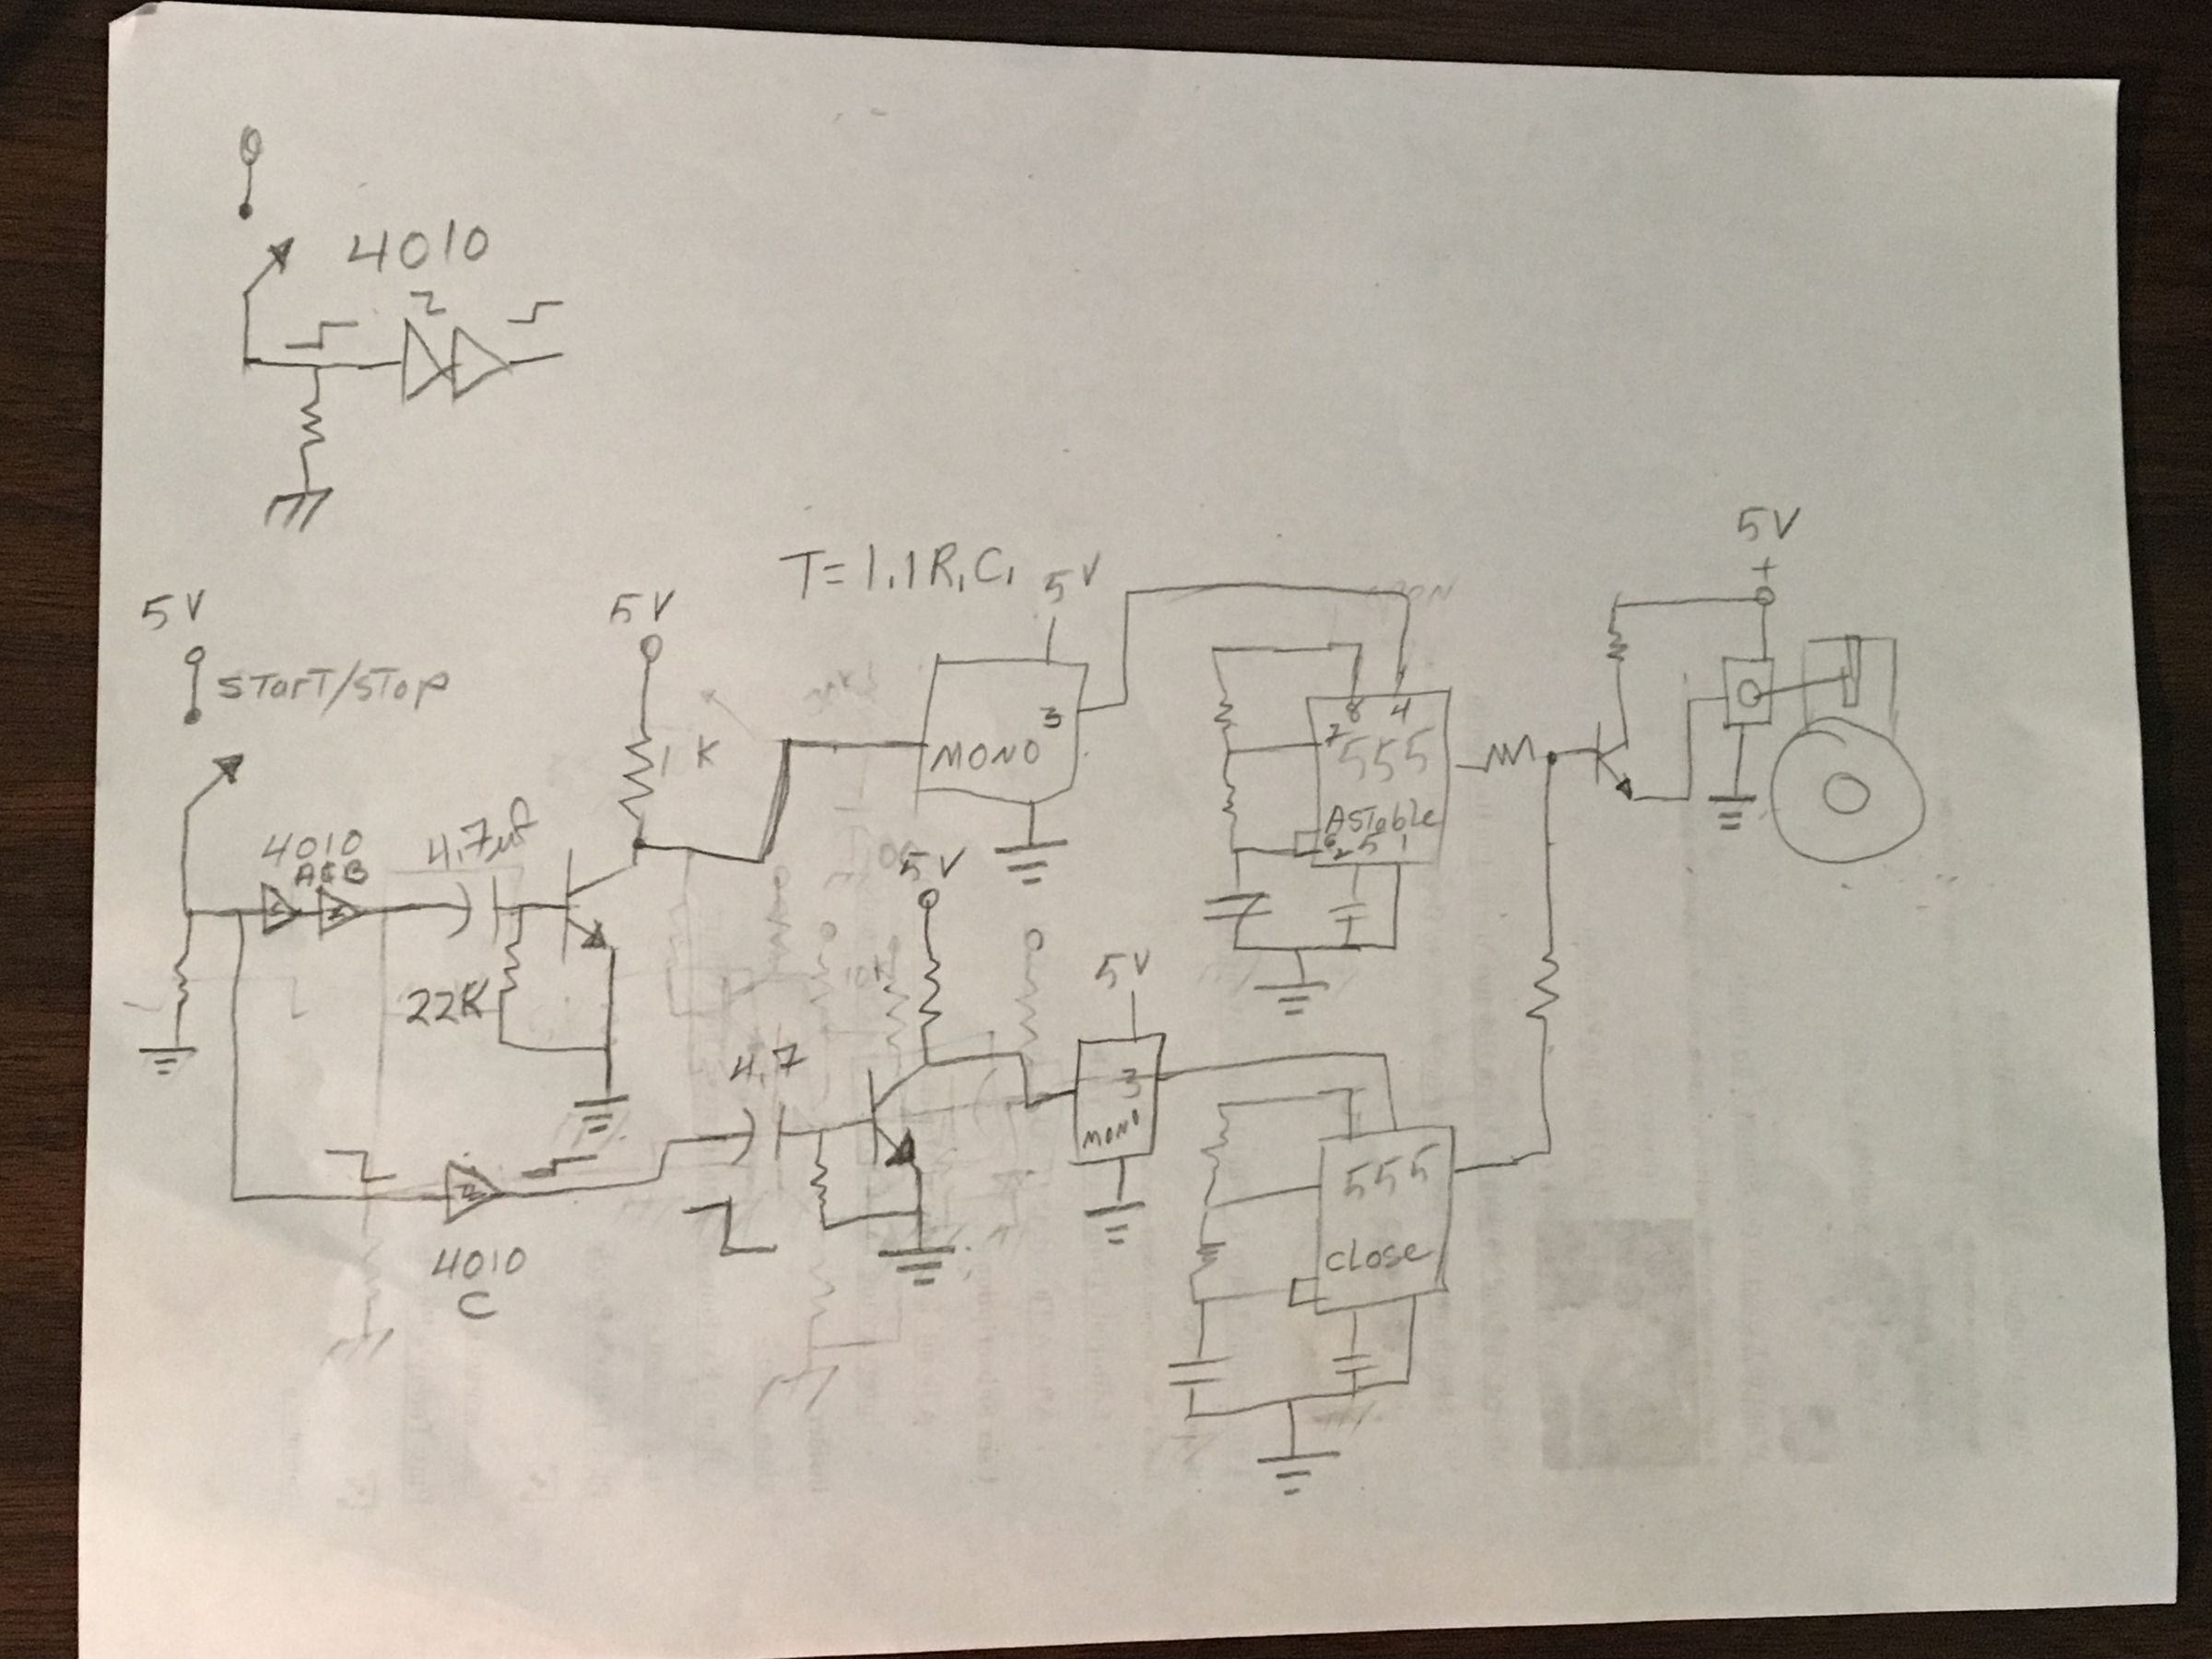 4010
T=1.1R,C,
5V
5V
START/STOP
5V
1K
5V
MONO
3
8 4
7
555
AStable
6 2 5 1
5V
4010
A&B
4.7uf
22K
5V
5V
4.7
3
MONO
555
close
4010
C